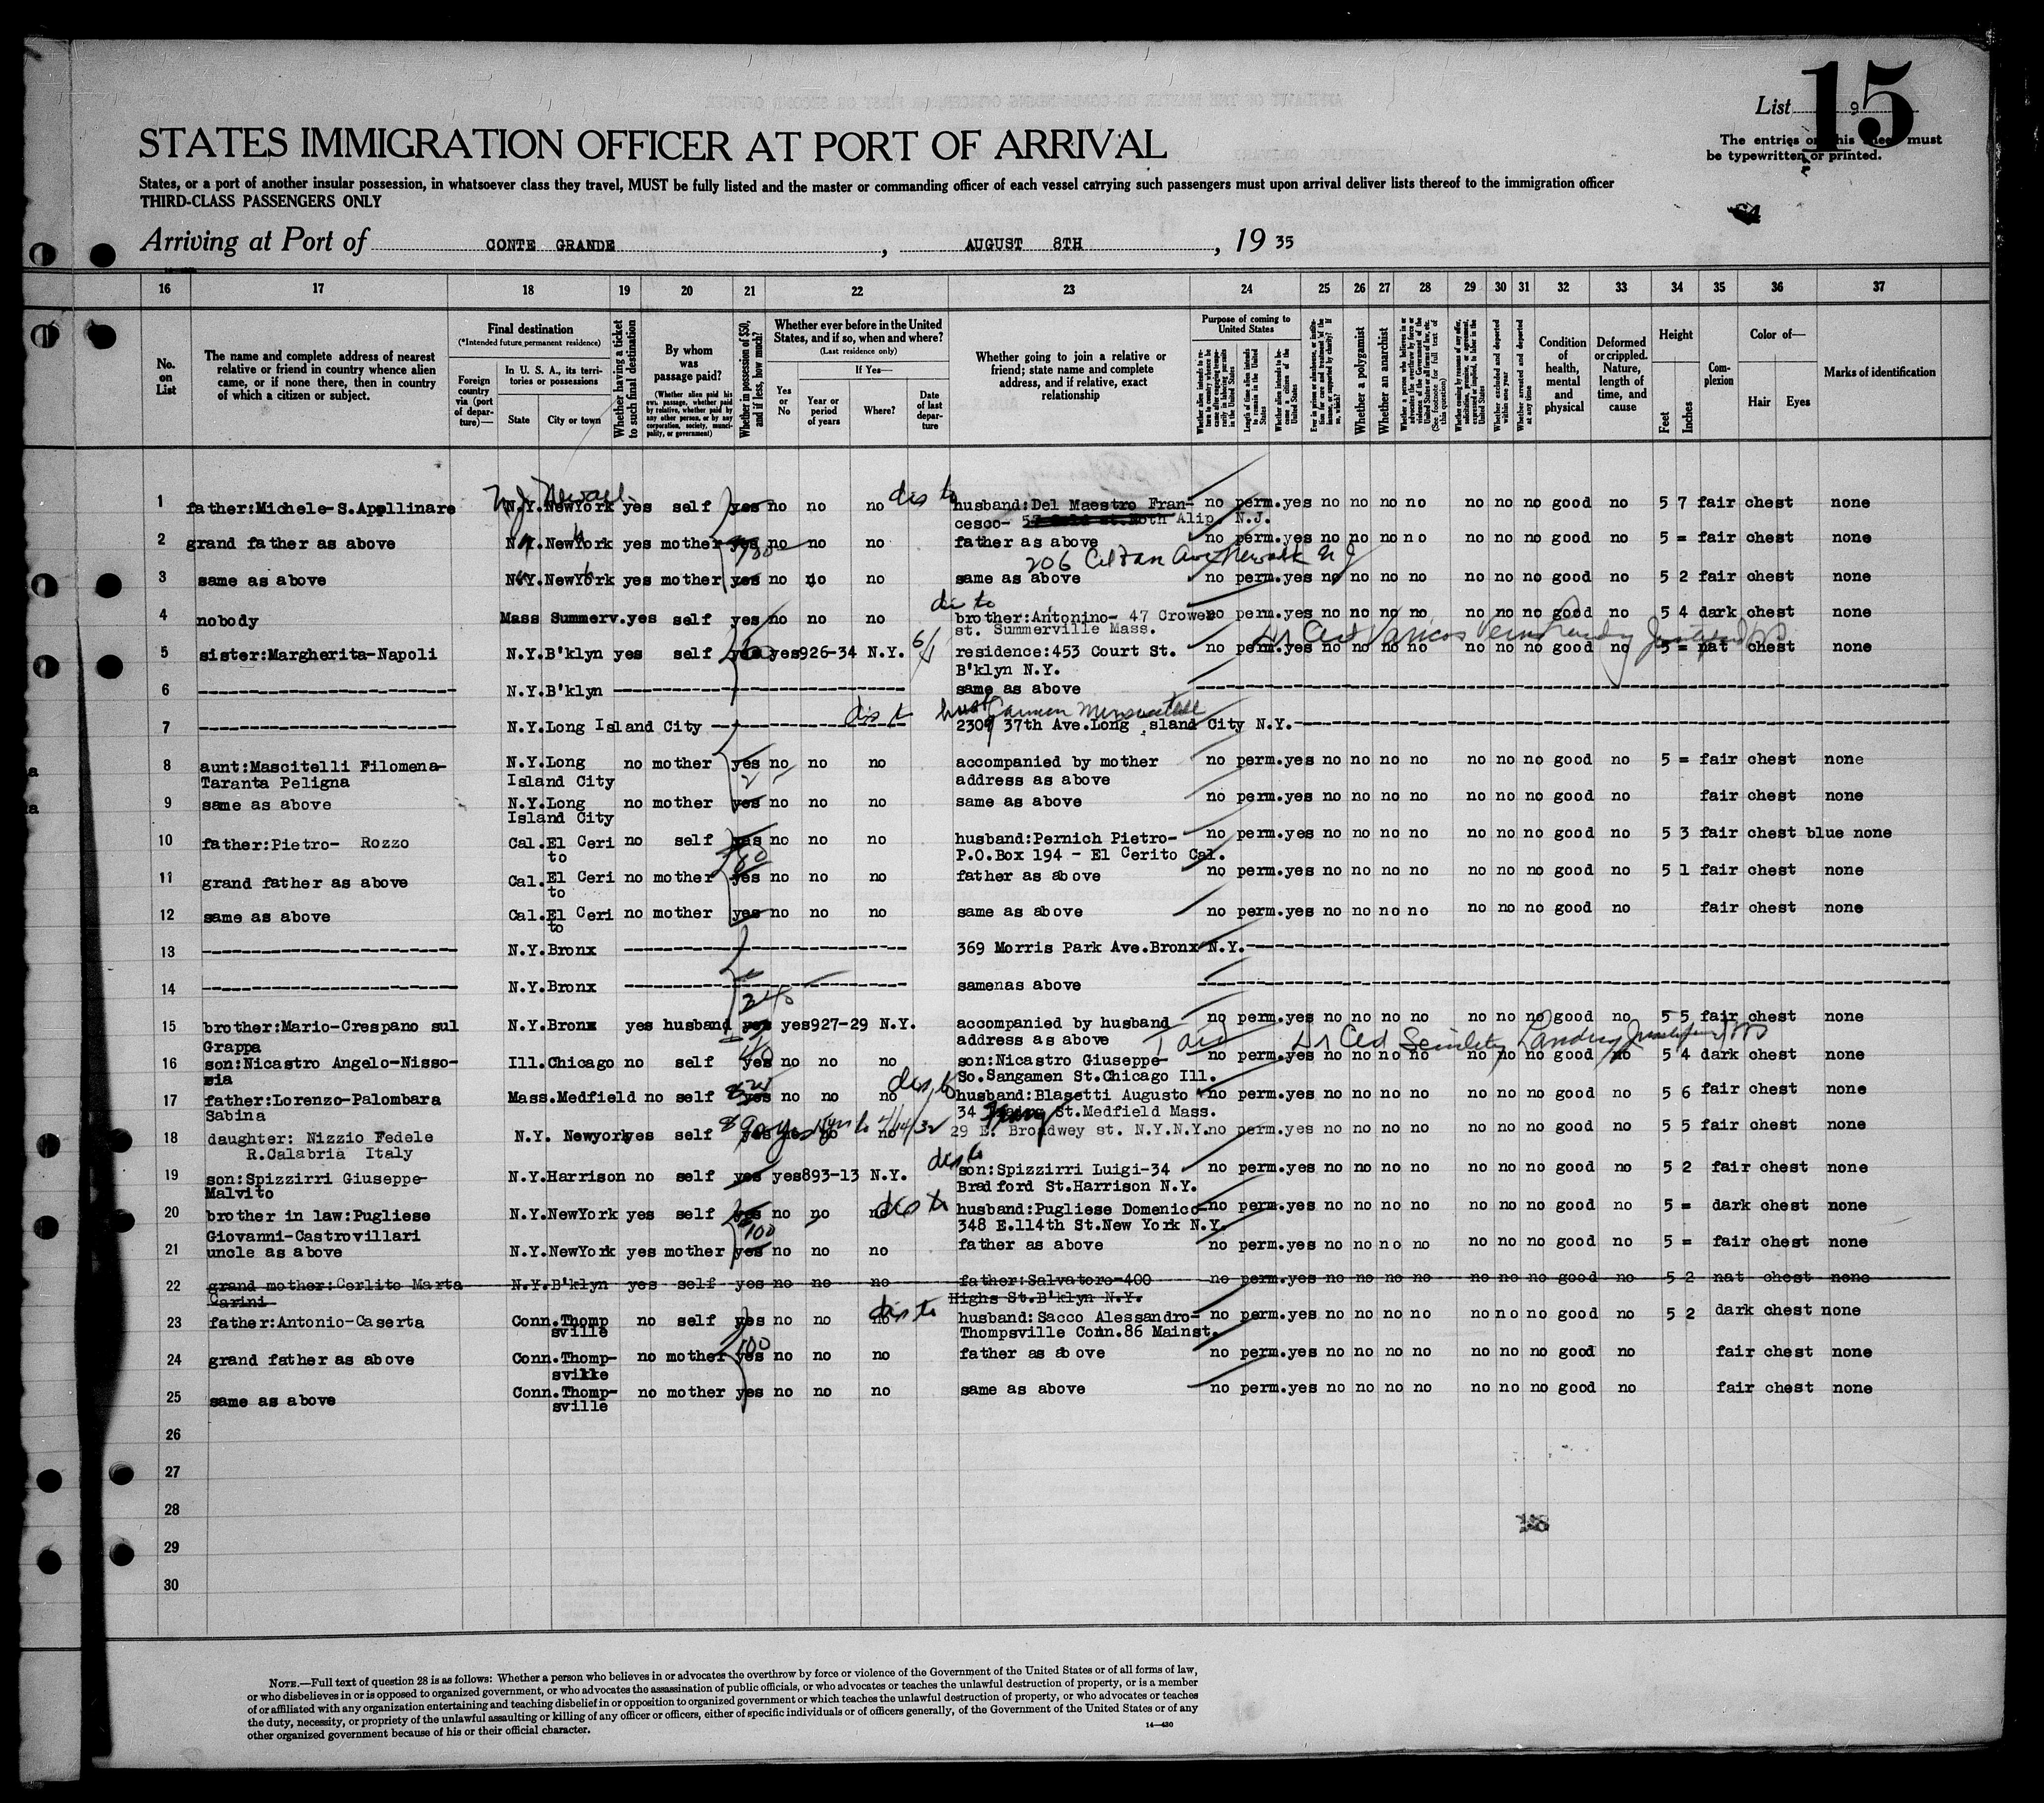 List 9
15
The entries on this sheet must
be typewritten or printed.
STATES IMMIGRATION OFFICER AT PORT OF ARRIVAL
States, or a port of another insular possession, in whatsoever class they travel, MUST be fully listed and the master or commanding officer of each vessel carrying such passengers must upon arrival deliver lists thereof to the immigration officer
THIRD-CLASS PASSENGERS ONLY
Arriving at Port of CONTE GRANDE, AUGUST 8TH, 19 35
16 17 18 19 20 21 22 23 24 25 26 27 28 29 30 31 32 33 34 35 36 37
No. on List
The name and complete address of nearest relative or friend in country whence alien came, or if none there, then in country of which a citizen or subject.
Final destination
(*Intended future permanent residence)
Foreign country via (port of departure)—
In U. S. A., its territories or possessions
State
City or town
Whether having a ticket to such final destination
By whom was passage paid?
(Whether alien paid his own passage, whether paid by relative, whether paid by any other person, or by any corporation, society, municipality, or government)
Whether in possession of $50, and if less, how much?
Whether ever before in the United States, and if so, when and where?
(Last residence only)
Yes or No
If Yes—
Year or period of years
Where?
Date of last departure
Whether going to join a relative or friend; state name and complete address, and if relative, exact relationship
Purpose of coming to United States
Length of time alien intends to remain in the United States
Whether alien intends to become a citizen of the United States
Whether a polygamist
Whether an anarchist
Whether excluded and deported within one year
Whether arrested and deported at any time
Condition of health, mental and physical
Deformed or crippled. Nature, length of time, and cause
Height
Feet
Inches
Complexion
Color of—
Hair
Eyes
Marks of identification
1 father:Michele-S.Apollinare N.Y. NewYork yes self yes no no no dis to husband:Del Maestro Fran- no perm.yes no no no no no no no good no 5 7 fair chest none
N J Newark
cesco- Alip. N.J.
2 grand father as above N.Y. NewYork yes mother yes no no no father as above no perm.yes no no no no no no no good no 5 = fair chest none
Newark N J
3 same as above N.Y. NewYork yes mother yes no no no same as above no perm.yes no no no no no no no good no 5 2 fair chest none
4 nobody Mass Summerv.yes self yes no no no brother:Antonino- 47 Crower no perm.yes no no no no no no no good no 5 4 dark chest none
st. Summerville Mass.
5 sister:Margherita-Napoli N.Y.B'klyn yes self yes yes926-34 N.Y. residence:453 Court St. no perm.yes no no no no no no no good no 5 = nat chest none
B'klyn N.Y.
6 N.Y.B'klyn same as above
7 N.Y.Long Island City dis to 2309 37th Ave.Long sland City N.Y.
8 aunt:Mascitelli Filomena- N.Y.Long no mother yes no no no accompanied by mother no perm.yes no no no no no no no good no 5 = fair chest none
Taranta Peligna Island City address as above
9 same as above N.Y.Long no mother yes no no no same as above no perm.yes no no no no no no no good no fair chest none
Island City
10 father:Pietro- Rozzo Cal.El Ceri no self yes no no no husband:Pernich Pietro- no perm.yes no no no no no no no good no 5 3 fair chest blue none
to P.O.Box 194 - El Cerito Cal.
11 grand father as above Cal.El Ceri no mother yes no no no father as above no perm.yes no no no no no no no good no 5 1 fair chest none
to
12 same as above Cal.El Ceri no mother yes no no no same as above no perm.yes no no no no no no no good no fair chest none
to
13 N.Y.Bronx 369 Morris Park Ave.Bronx N.Y.
14 N.Y.Bronx samenas above
240
15 brother:Mario-Crespano sul N.Y.Bronx yes husband yes yes927-29 N.Y. accompanied by husband no perm.yes no no no no no no no good no 5 5 fair chest none
Grappa address as above
16 son:Nicastro Angelo-Nisso- Ill.Chicago no self yes no no no son:Nicastro Giuseppe- no perm.yes no no no no no no no good no 5 4 dark chest none
sia So.Sangamen St.Chicago Ill.
17 father:Lorenzo-Palombara Mass.Medfield no self yes no no no dis to husband:Blasetti Augusto no perm.yes no no no no no no no good no 5 6 fair chest none
Sabina 34 St.Medfield Mass.
18 daughter: Nizzio Fedele N.Y. Newyorkyes self yes yes no no 29 E. Broadwey st. N.Y.N.Y.no perm.yes no no no no no no no good no 5 5 fair chest none
R.Calabria Italy
19 son:Spizzirri Giuseppe- N.Y.Harrison no self yes yes893-13 N.Y. dis to son:Spizzirri Luigi-34 no perm.yes no no no no no no no good no 5 2 fair chest none
Malvito Bradford St.Harrison N.Y.
20 brother in law:Pugliese N.Y.NewYork yes self yes no no no dis to husband:Pugliese Domenico- no perm.yes no no no no no no no good no 5 = dark chest none
Giovanni-Castrovillari 100 348 E.114th St.New York N.Y.
21 uncle as above N.Y.NewYork yes mother yes no no no father as above no perm.yes no no no no no no no good no 5 = fair chest none
22 grand mother:Cerlito Marta N.Y.B'klyn yes self yes no no no father:Salvatore-400 no perm.yes no no no no no no no good no 5 2 nat chest none
Carini Highs St.B'klyn N.Y.
23 father:Antonio-Caserta Conn.Thomp no self yes no no no dis to husband:Sacco Alessandro- no perm.yes no no no no no no no good no 5 2 dark chest none
sville 100 Thompsville Conn.86 Mainst.
24 grand father as above Conn.Thomp- no mother yes no no no father as above no perm.yes no no no no no no no good no fair chest none
sville
25 same as above Conn.Thomp- no mother yes no no no same as above no perm.yes no no no no no no no good no fair chest none
sville
26
27
28
29
30
NOTE.—Full text of question 28 is as follows: Whether a person who believes in or advocates the overthrow by force or violence of the Government of the United States or of all forms of law,
or who disbelieves in or is opposed to organized government, or who advocates the assassination of public officials, or who advocates or teaches the unlawful destruction of property, or is a member
of or affiliated with any organization entertaining and teaching disbelief in or opposition to organized government or which teaches the unlawful destruction of property, or who advocates or teaches
the duty, necessity, or propriety of the unlawful assaulting or killing of any officer or officers, either of specific individuals or of officers generally, of the Government of the United States or of any
other organized government because of his or their official character.
14—430